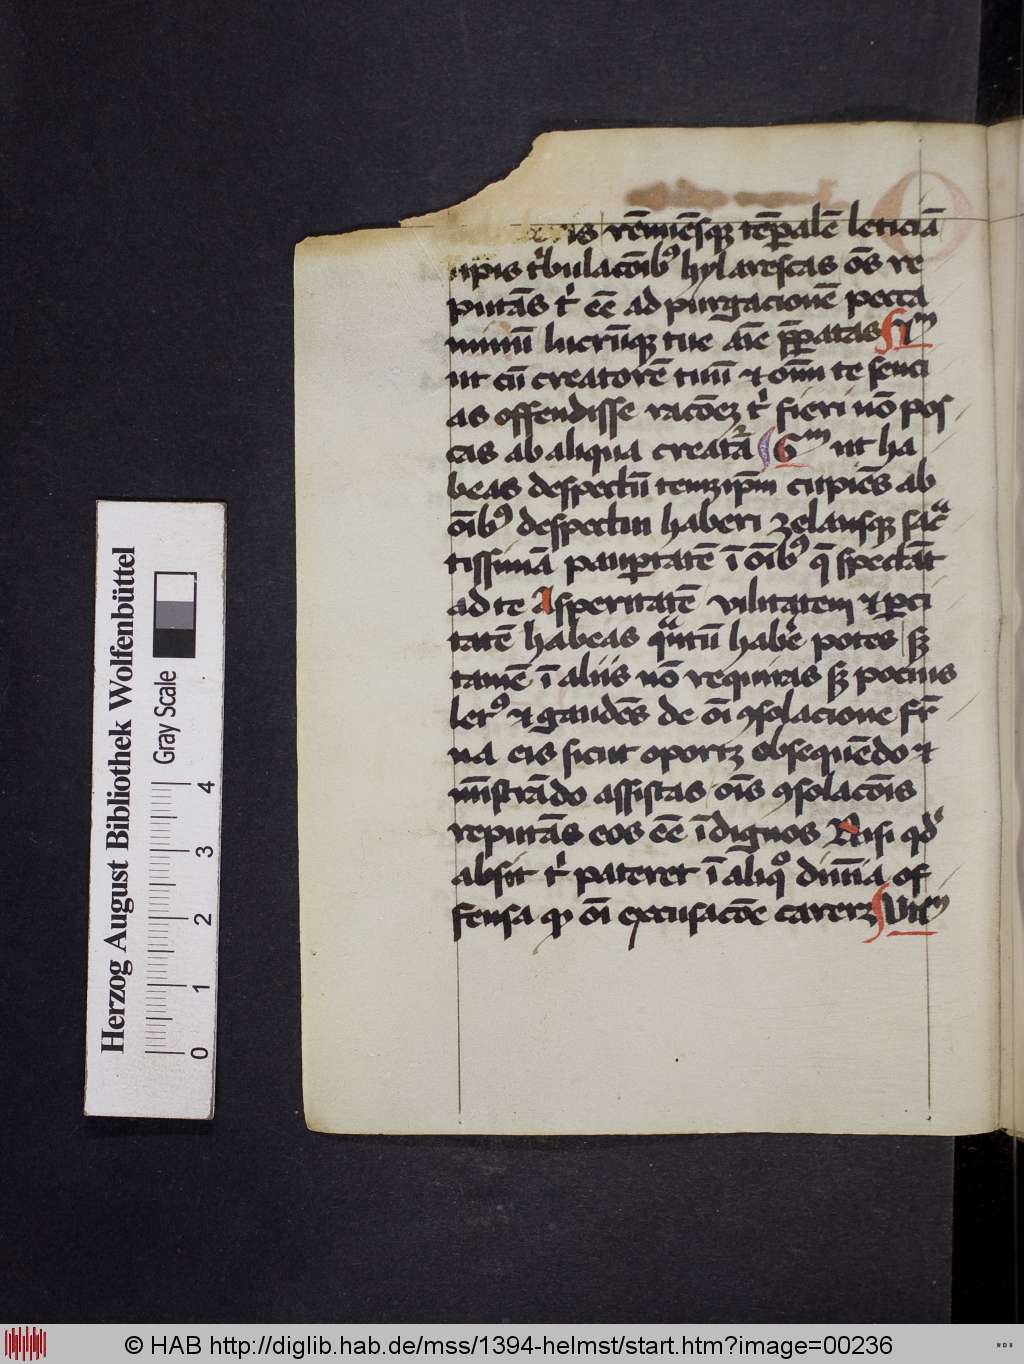 is rēnuēsqꝫ tēꝑalē leticiā
npis tͥbulacōibꝰ hylarescas ōs re
putās tͥ eē ad purgacionē pecca
minū lucrūqꝫ tue aīe p̄ꝑatas Vm
ut cū creatorē tuū ⁊ oīm te senci
as offendisse racōeꝫ tͥ fieri nō pos
cas ab aliqua creatᷓa 6m ut ha
beas despectū temꝫip̄m cupiēs ab
oībꝰ despectui haberi zelansqꝫ sācᷓ
tissimā pauꝑtatē ī oībꝰ q̄ spectāt
ad te Asperitatē vilitatem ⁊ ꝑci
tatē habeas qᷓntū habe᷑ potes sꝫ
tamē ī aliis nō requiras sꝫ pocius
letꝰ ⁊ gaudēs de oī ꝯsolacione fr̄
na eis sicut oportꝫ obsequēdo ⁊
mīstrādo assistas oīs ꝯsolacōis
reputās eos eē īdignos Nisi qd̓
absit tͥ pateret ī aliqͦ diuīa of
fensa qꝫ oī excusacōe carerꝫ VIIm
Herzog August Bibliothek Wolfenbüttel
Gray Scale
0 1 2 3 4
© HAB http://diglib.hab.de/mss/1394-helmst/start.htm?image=00236